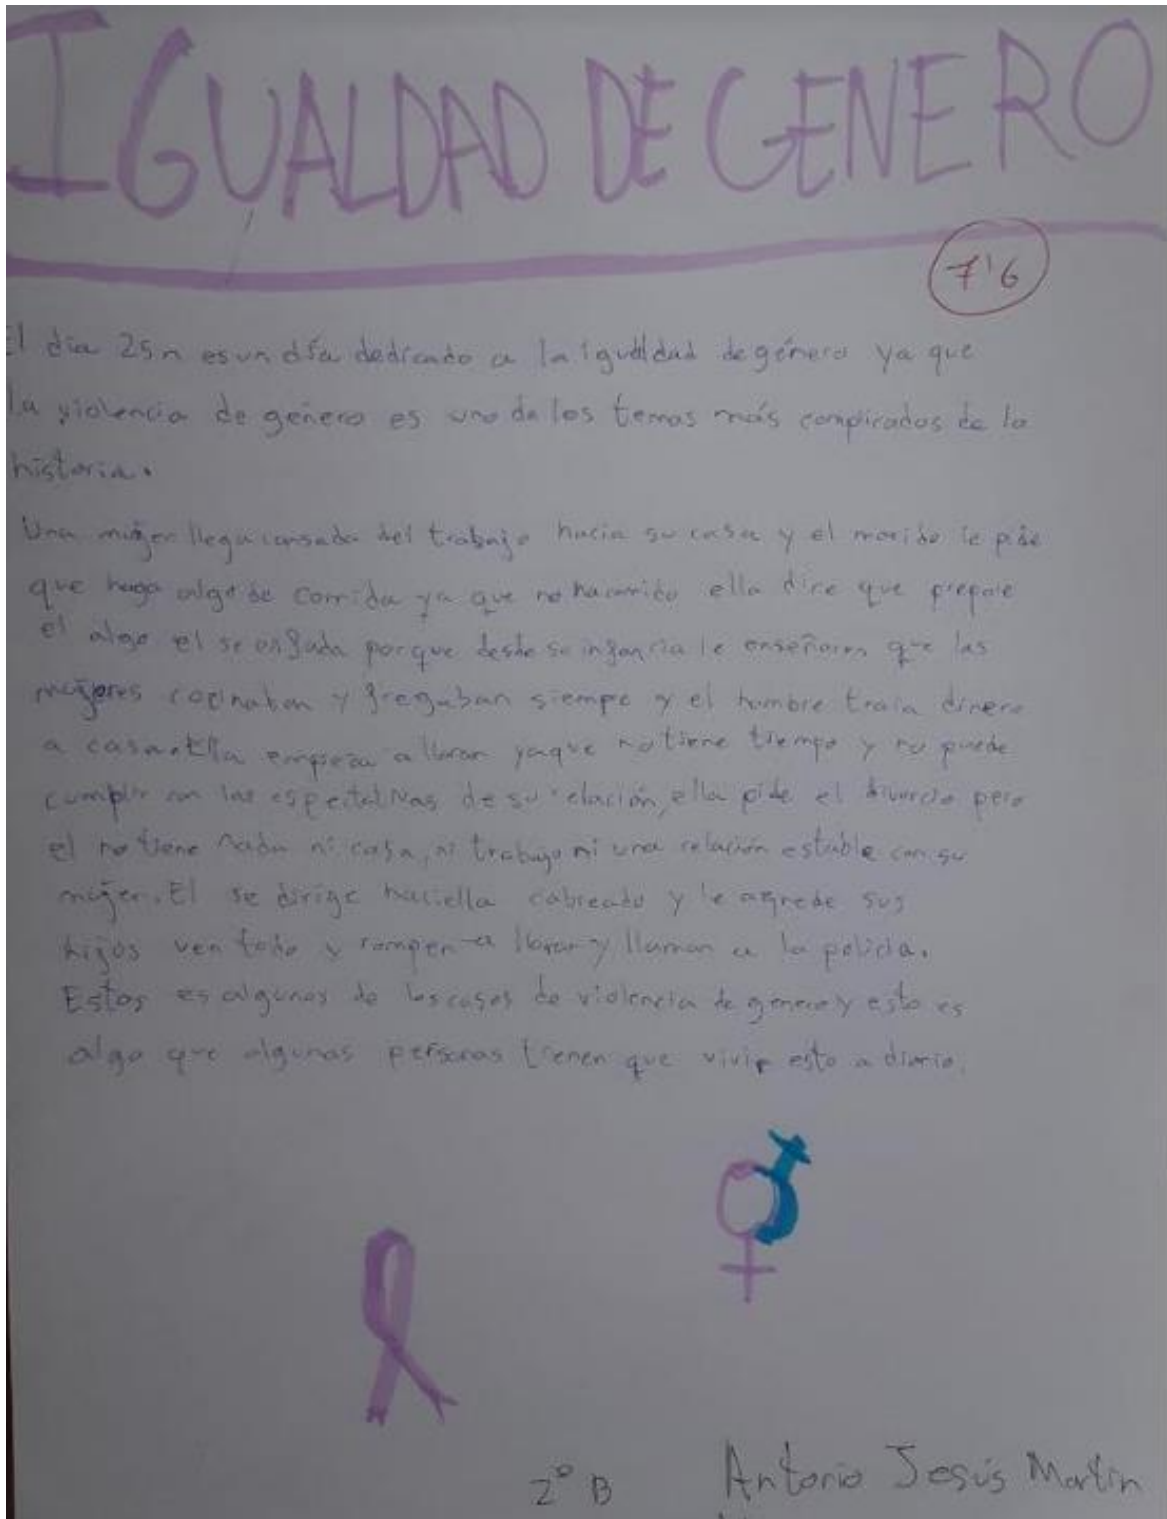 IGUALDAD DE GENERO
7'6
El día 25n es un día dedicado a la igualdad de género ya que
la violencia de género es uno de los temas más compicados de la
historia.
Una mujer llega cansada del trabajo hacia su casa y el marido le pide
que haga algo de comida ya que no ha comido ella dice que prepare
el algo el se enfada porque desde su infancia le enseñaron que las
mujeres cocinaban y fregaban siempre y el hombre traia dinero
a casa. Ella empieza a llorar ya que no tiene tiempo y no puede
cumplir con las espectativas de su relación, ella pide el divorcio pero
el no tiene nada ni casa, ni trabajo ni una relación estable con su
mujer. El se dirige haciella cabreado y le agrede sus
hijos ven todo y rompen a llorar y llaman a la policía.
Estos es algunos de los casos de violencia de genero y esto es
algo que algunas personas tienen que vivir esto a diario.
2º B
Antonio Jesús Martín